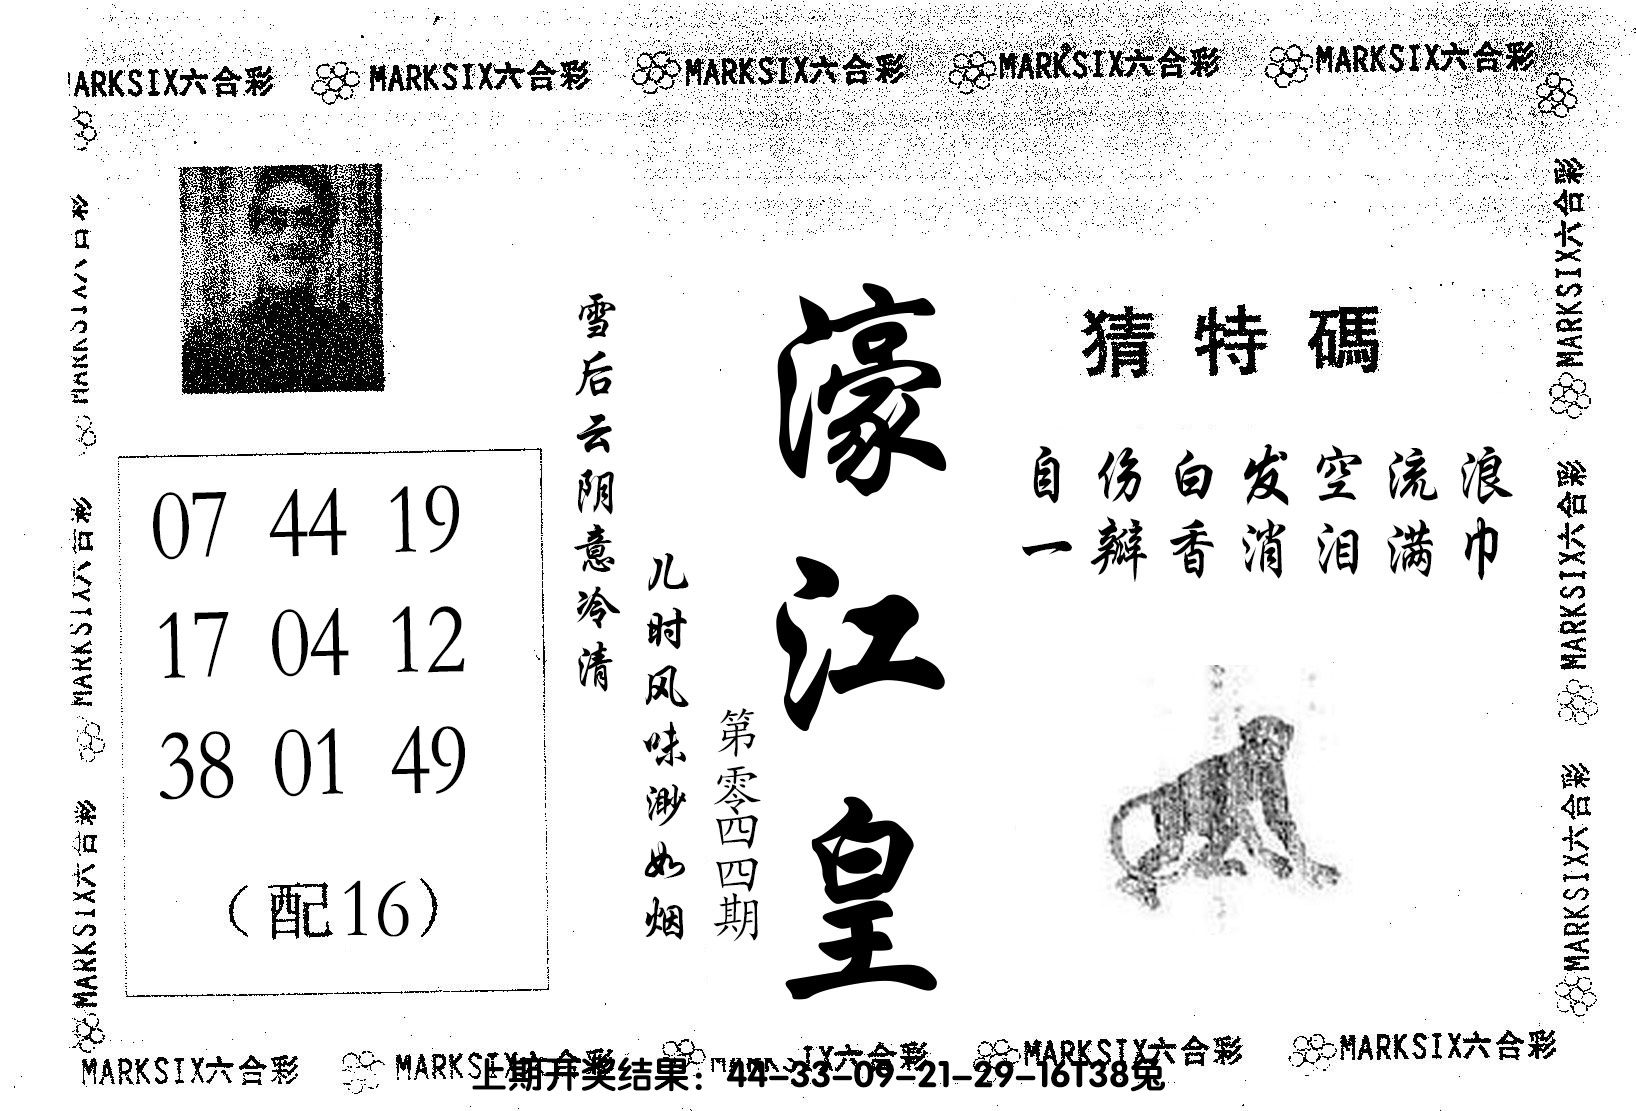 MARKSIX六合彩 MARKSIX六合彩 MARKSIX六合彩 MARKSIX六合彩
猜特碼
自伤白发空流浪
一瓣香消泪满巾
濠江皇
第零四四期
儿时风味渺如烟
雪后云阴意冷清
07 44 19
17 04 12
38 01 49
（配16）
MARKSIX六合彩
MARKSIX六合彩
MARKSIX六合彩
MARKSIX六合彩
MARKSIX六合彩
MARKSIX六合彩 MARKSIX六合彩 MARKSIX六合彩 MARKSIX六合彩
上期开奖结果：44-33-09-21-29-16T38兔